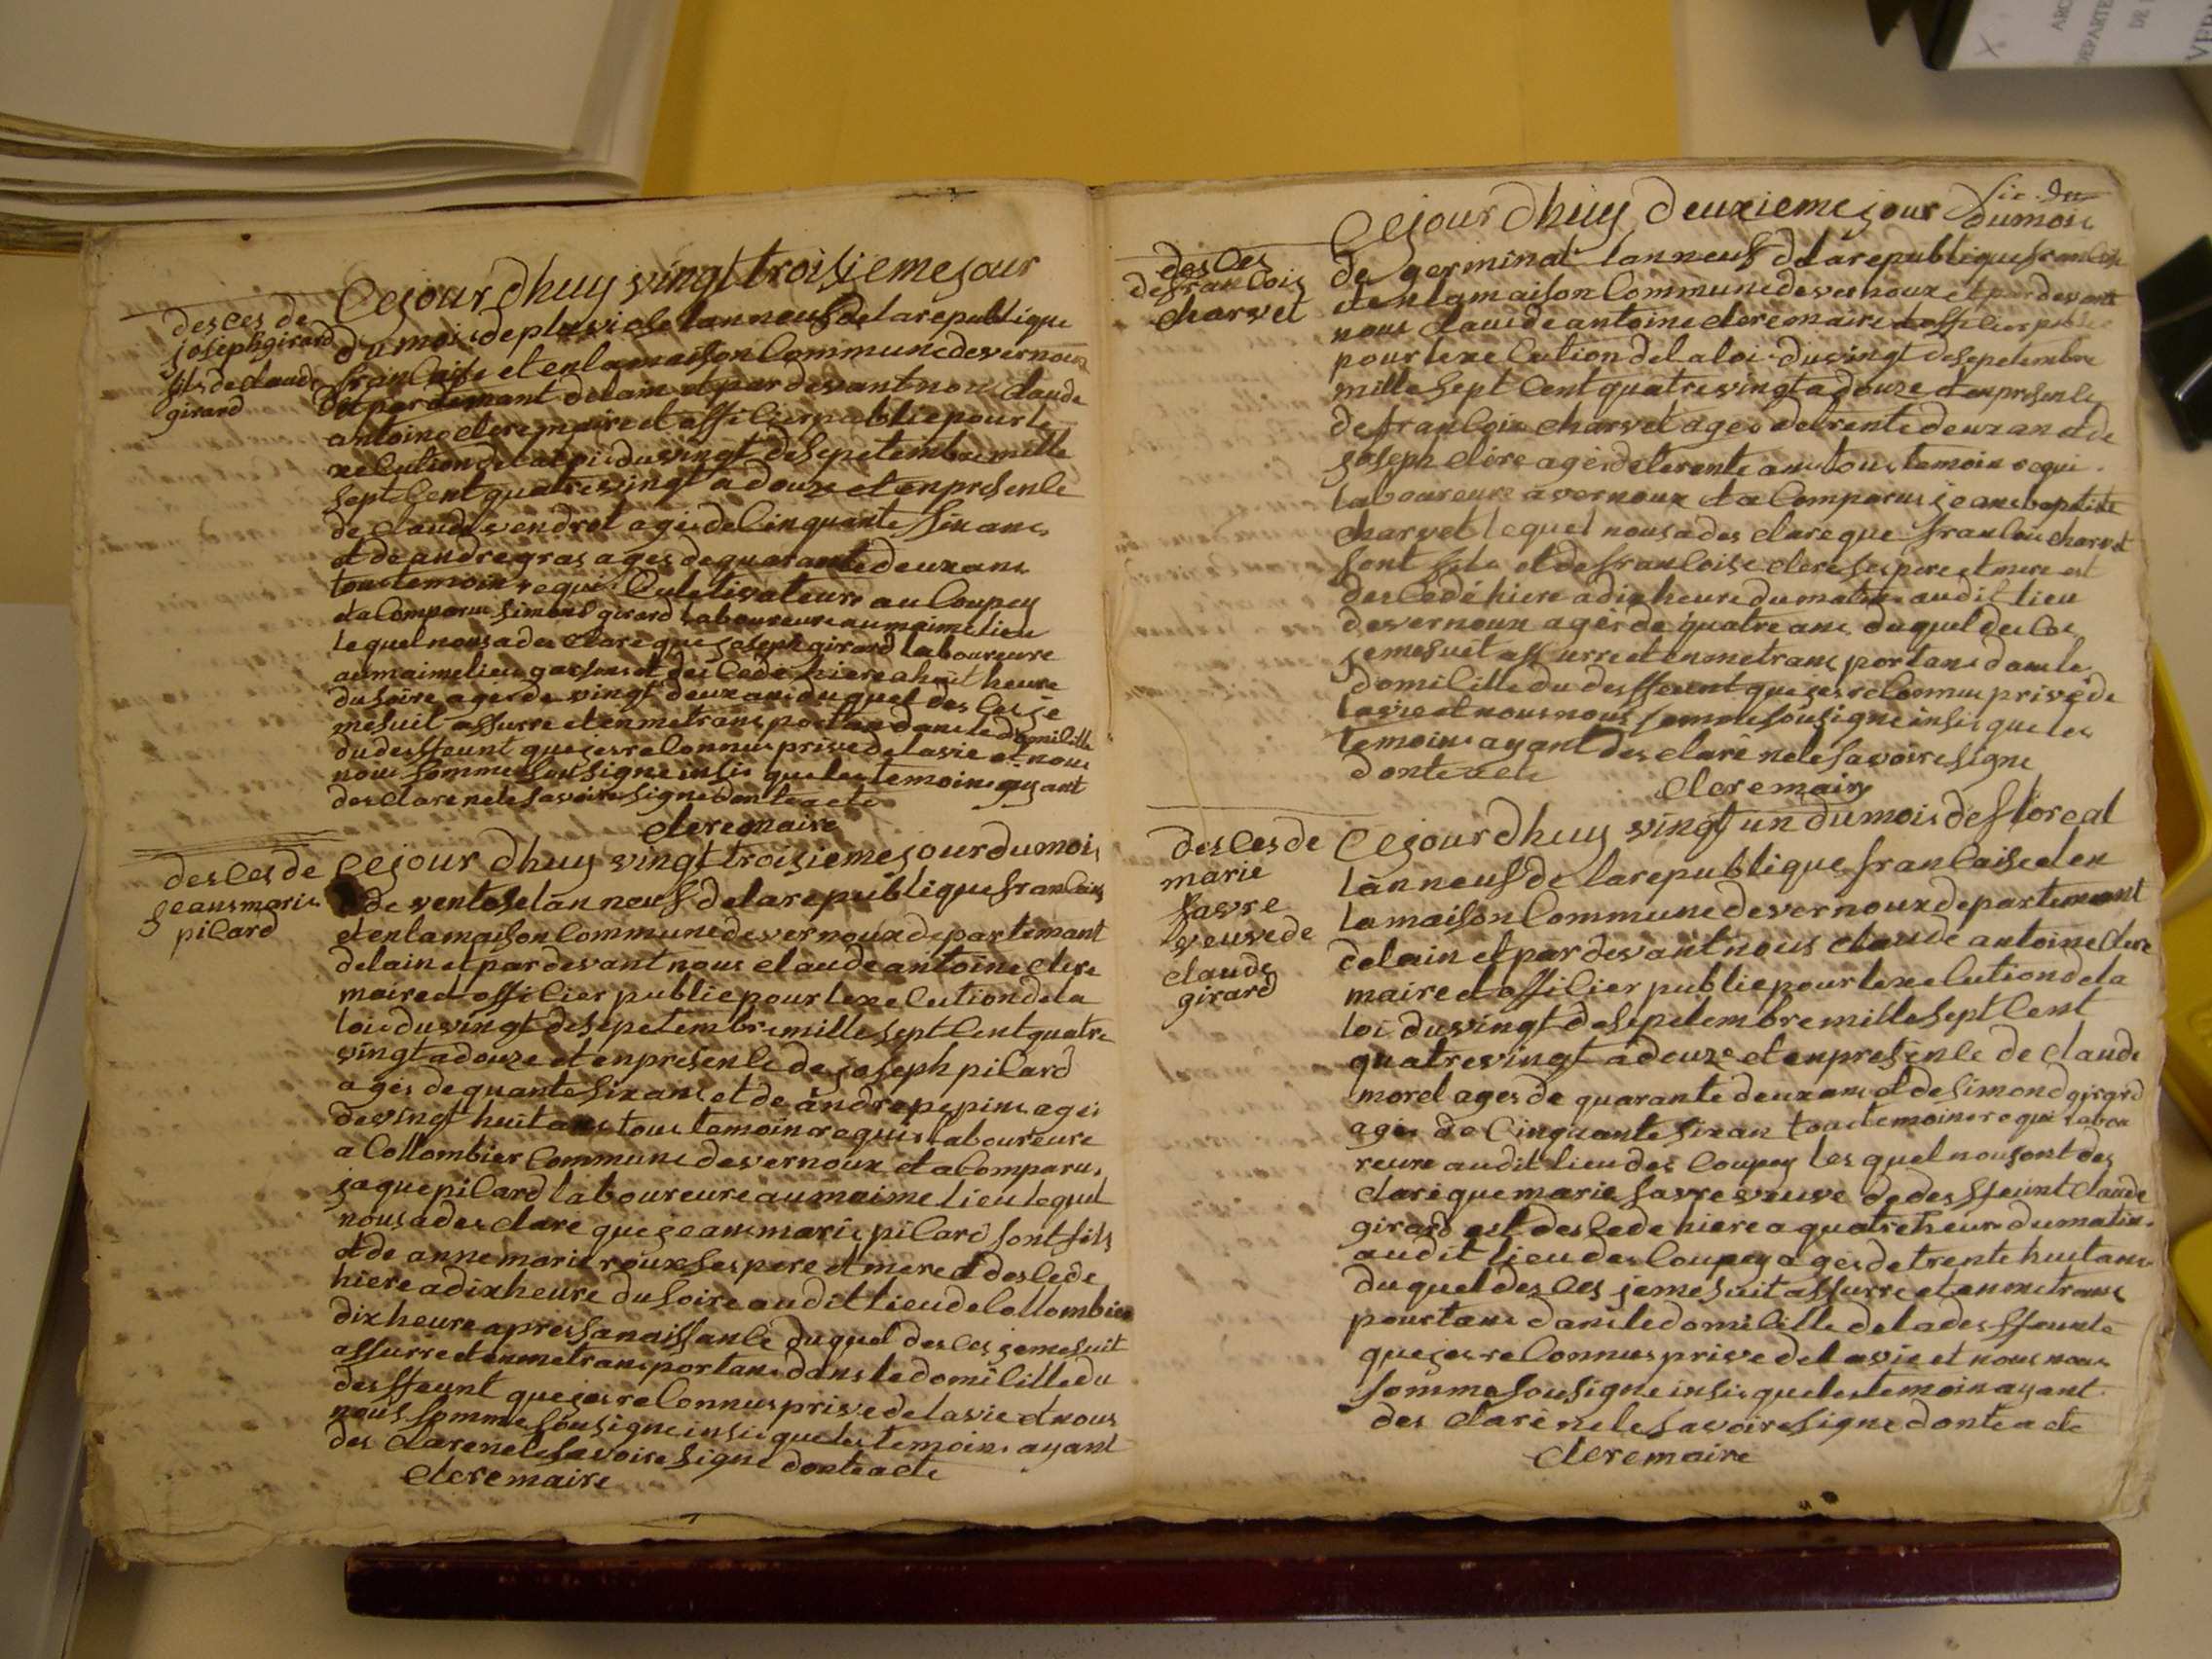 desces de
josephgirard
fils declaude
girard
Cejourdhuy vingt troisiemejour
dumois depluviose lanneuf delarepublique
francaise etenlamaison Commune devernoux
departemant delain et pardevant nous claude
antoine clere maire et officier publicpour le
xecution delaloi du vingt desepetembre mille
sept Cent quatrevingt adouze et enpresence
de claude vendrot agés decinquante six ans
et de andregras agés dequarantedeuxans
tous temoin requi Culetivateure au Coupey
etaComparu Simond girard laboureure aumaime lieu
lequel nousades claré que joseph girard laboureure
aumaimelieu garsons et des Cede hiere a huit heure
dusoire agés de vingt deuxans duquel desces je
mesuit assurre et enmetrans portans dansledomicille
dudesffeunt quejesreconnus prive delavie et nous
nous somme sousigne insi que les temoins ayant
desclare nele savoire signe donteacte
clere maire
desces de
jeansmarie
picard
Cejour dhuy vingt troisiemejourdumois
de ventose lan neuf delarepubliquefrancaise
etenlamaison Commune devernoux departemant
delain et pardevant nous claude antoine clere
maire et officier public pour lexecution dela
loi du vingt desepetembre mille sept Cent quatre
vingt adouze et enpresence de joseph picard
agés dequante six ans et de andre pepins agés
devingt huit ans tous temoins requis laboureure
a Collombier Commune devernoux et aComparu
jaque picard laboureure aumaime lieu lequel
nousades claré que jeansmarie picard sont fils
et de annemarie roux ses pere et mere et descede
hiere adixheure dusoire audit lieudeCollombier
dixheure apressanaissance duquel desces jemesuit
assurre et enmetrans portans dans ledomicille du
desffeunt quejesreconnus prive delavie et nous
nous somme sousigne insi que les temoins ayant
des clare nele savoire signe donteacte
clere maire
sic. du
desces
defrancois
charvet
Cejour dhuy deuxieme jour dumois
de germinal lan neuf delarepubliquefrancaise
etenlamaison Commune devernoux et pardevant
nous claude antoine clere maire et officier public
pour lexecution delaloi du vingt desepetembre
mille sept Cent quatrevingt adouze et enpresence
defrancois charvet agés detrente deux an et de
joseph clere agés deterente ans tous temoin requi
laboureure avernoux etaComparu jeansbaptiste
charvet lequel nousades clare que francois charvet
sont fils et defrancoise clere ses pere et mere est
descedé hiere adix heure dumatin audit lieu
devernoux agés de quatre ans duquel desces
jemesuit assurre et enmetrans portans dansle
domicille du desffeunt que jesreconnus prive de
lavie et nous nous somme sousigne insi que les
temoins ayant desclaré nele savoire signe
donteacte
clere maire
desces de
marie
favre
veuve de
claude
girard
Cejourdhuy vingt un dumois defloreal
lan neuf de larepublique francaise et en
lamaison Commune devernoux departemant
delain et pardevant nous claude antoine clere
maire et officier public pour lexecution dela
loi du vingt desepetembre mille sept Cent
quatrevingt adouze et enpresence de claude
morel agés de quarante deux ans et de simond girard
agés de Cinquante sixan tous temoins requi labou
reure audit lieu des Coupey les quel nous ont des
claré que marie favre veuve de desffeunt claude
girard est descede hiere a quatre heure dumatin
audit lieu des Coupey agés detrente huit ans
duquel desces jemesuit assurre et enmetrans
pourtans dans ledomicille deladesffeunte
quejesreconnus prive delavie et nous nous
somme sousigne insi que les temoin ayant
des claré nele savoire signe donteacte
clere maire
ARC
DEPARTE
DE
VEN
X